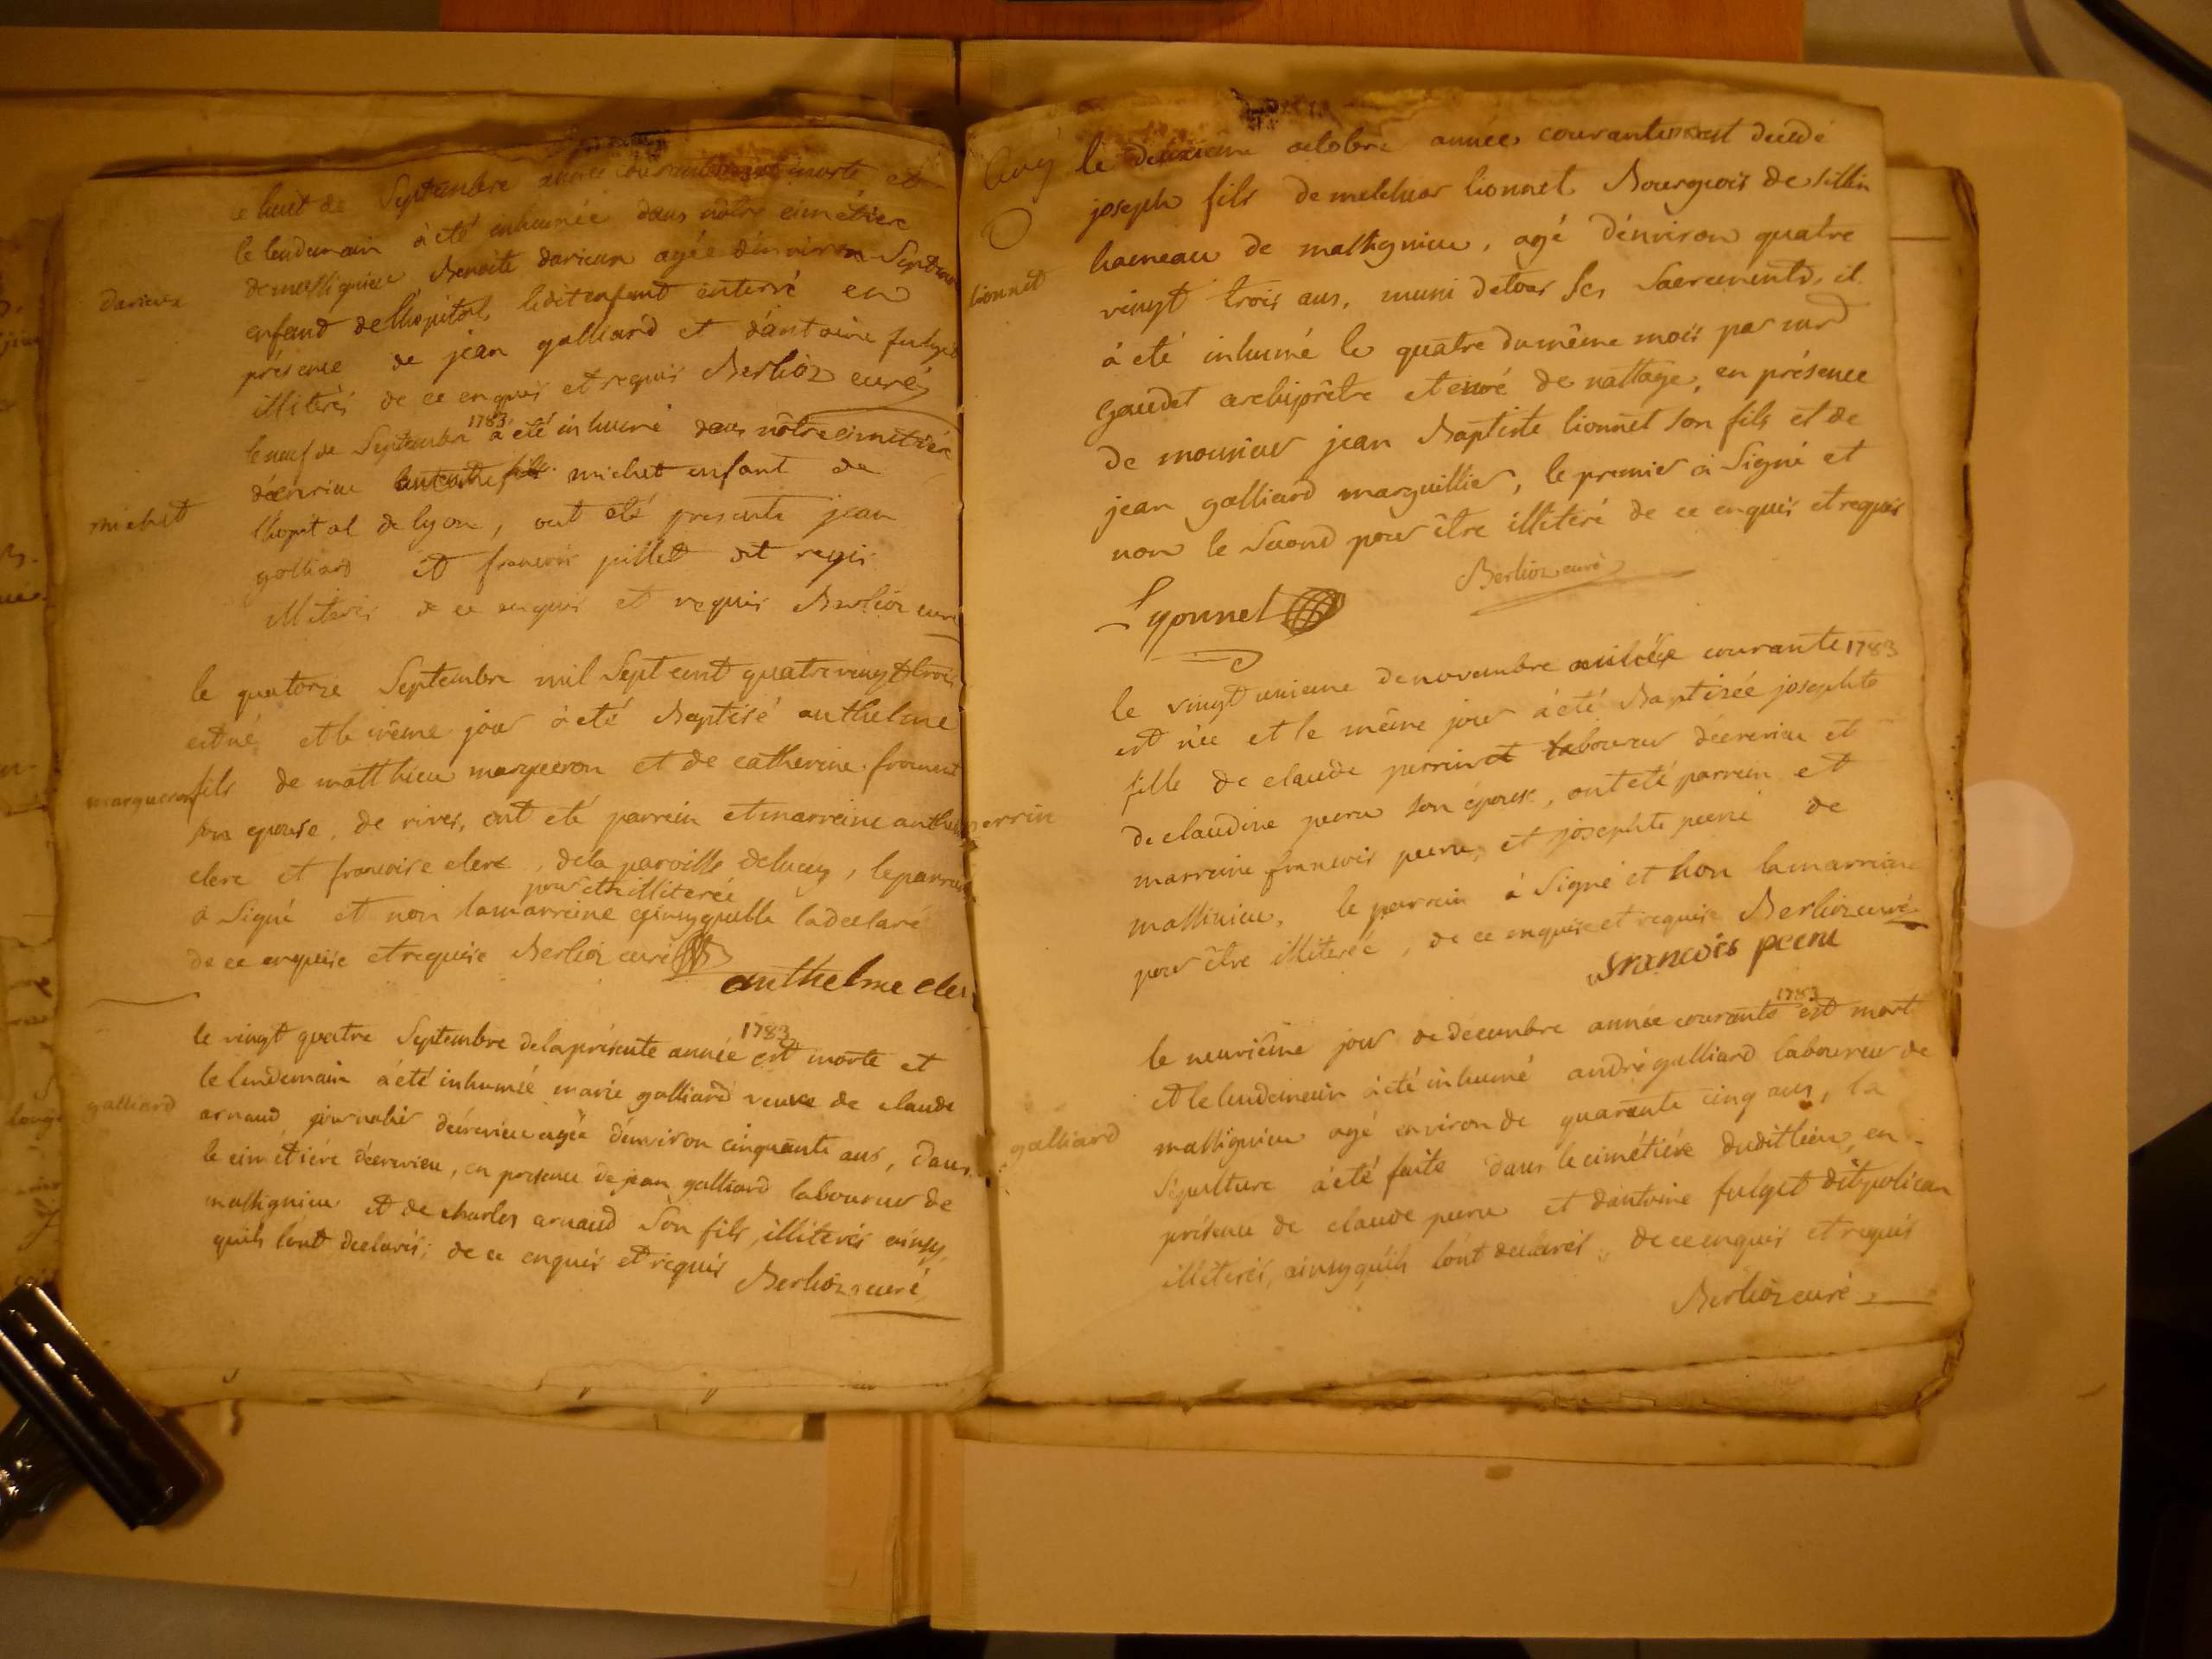 le huit de Septembre année courante est morte et
le lendemain à eté inhumée dans nôtre cimetiere
de massignieu Benoite darieux agée d'environ Sept
enfant de l'hopital, ledit enfant enterré en
présence de jean galliard et d'antoine fulget
illiterés de ce enquis et requis Berlioz curé
darieux
le neuf de Septembre 1783 à eté inhumé dans nôtre cimetiére
décrivieu michet enfant de
l'hopital de lyon, ont eté presents jean
galliard et francois pillet dit regis
illiterés de ce enquis et requis Berlioz curé
michet
le quatorze Septembre mil Sept cent quatre vingt trois
est né, et le même jour à eté Baptisé anthelme
fils de matthieu margueron et de catherine froment
son epouse, de rives, ont eté parrein et marreine anthelme
clerc et francoise clerc, de la paroisse de lucey, le parrein
à Signé et non la marreine pour etre illiterée ainsy qu'elle la declaré
de ce enquise et requise Berlioz curé
anthelme cler
margueron
le vingt quatre Septembre de la présente année 1783 est morte et
le lendemain à eté inhumée marie galliard veuve de claude
arnaud journalier décrevieu agée d'environ cinquante ans, dans
le cimetiére décrevieu, en presence de jean galliard laboureur de
massignieu et de charles arnaud Son fils, illiterés ainsy
quils lont declarés, de ce enquis et requis Berlioz curé
galliard
le deuxieme octobre année courante est decedé
joseph fils de melchior lionnet Bourgeois de sillin
hameau de massignieu, agé d'environ quatre
vingt trois ans, muni de tous Ses Sacrements, il
à eté inhumé le quatre du même mois par
gaudet archiprêtre et curé de nattage, en présence
de monsieur jean Baptiste lionnet son fils et de
jean galliard marguillier, le premier à Signé et
non le Second pour être illiteré de ce enquis et requis
Berlioz curé
Lyonnet
lionnet
le vingt unieme de novembre année courante 1783
est née et le même jour à eté Baptisée josephte
fille de claude perrin et laboureur décrevieu et
de claudine perru son épouse, ont eté parrein et
marreine francois perru, et josephte de
massinieu, le parrein à Signé et non la marreine
pour être illiterée, de ce enquise et requise Berlioz curé
francois perru
perrin
le neuviême jour de decembre année courante 1783 est mort
et le lendemain à eté inhumé andré galliard laboureur de
massignieu agé environ de quarante cinq ans, la
Sépulture à eté faite dans le cimétiére dudit lieu, en
présence de claude perru et d'antoine fulget dit polican
illiterés, ainsy quils lont declarés, de ce enquis et requis
Berlioz curé
galliard